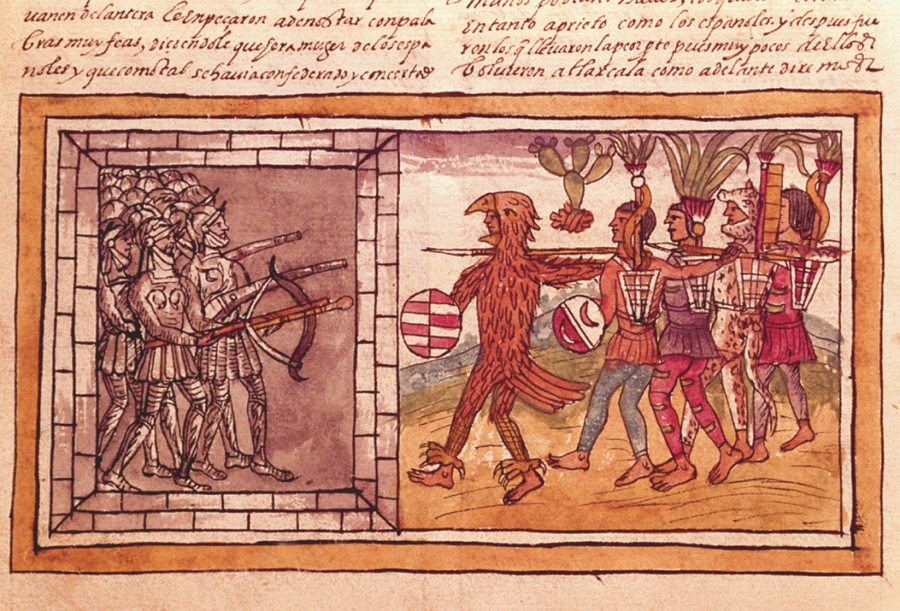 uanen delantera le enpeçaron a denostar con pala
bras muy feas, diciendole que sera muger de los espa
noles y que como tal se havia confederado y concertado
en tanto aprieto como los españoles. y despues fue
ron los q̃ lleuaron la peor pte pues muy pocos dellos
boluieron a tlaxcala como adelante diremos